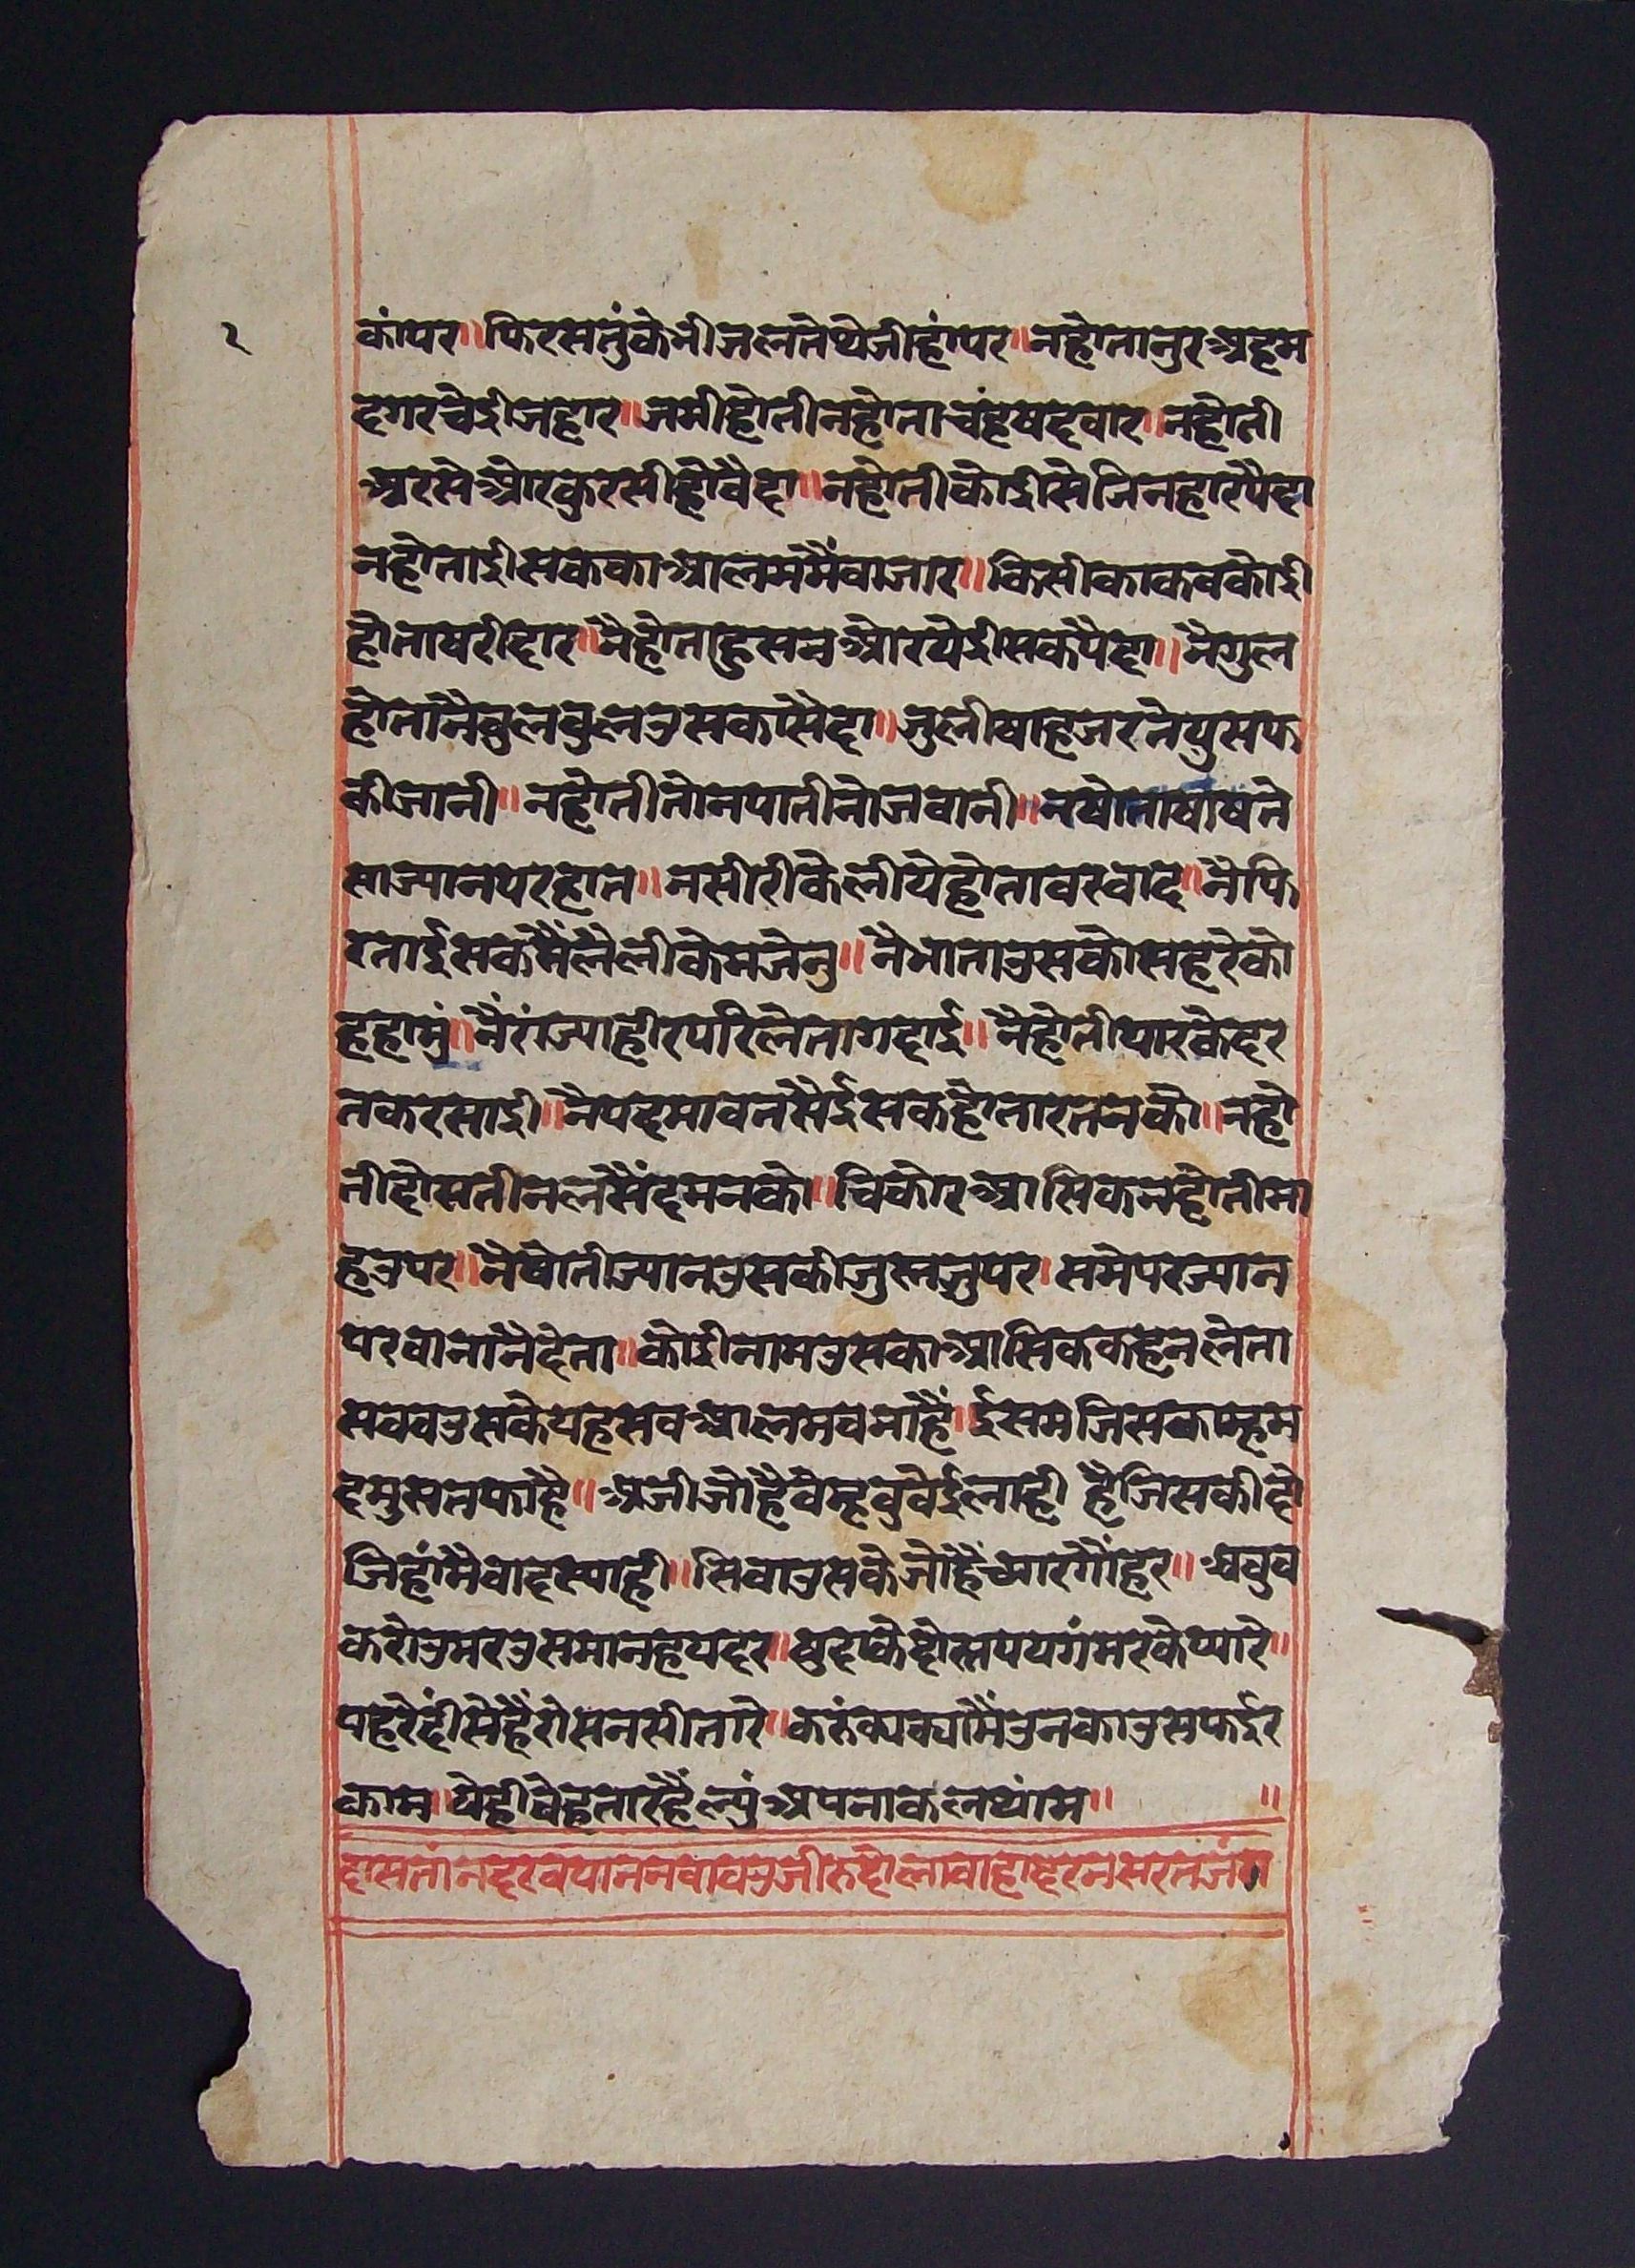 २
कांपर॥फिरसतुंकेभीजलतेथेजीहांपर॥नहोतानुरअहम
दगरचेईीजहार॥जमीहोतीनहोताचंहषहवार॥नहोती
अरसेओरकुरसीहोवैदा॥नहोतीकोईीसेजिनहारपैदा
नहोताईीसककाआलममैंवाजार॥किसीकाकवकोईी
होताषरीदार॥नैहोताहुसनओरयेईीसकपैदा॥नैगुल
होतानैवुलवुलउसकासैदा॥जुलीषाहजरतेयुसफ
कीजानी॥नहोतीतोनपातीनोजवानी॥नषोताषोषने
साज्यानपरहात॥नसीरीकैलीयेहोतावरवाद॥नैफि
रतार्इसकमैंलैलीकेमजेनु॥नैभाताउसकोसहरेको
हहामुं॥नैंरांज्याहीरपरिलेतागदार्इ॥नैहोतीयारकैदर
तकरसाईी॥नैपदमावनसैर्इसकहोतारतनको॥नहो
तीहोसतीनलसैंदमनको॥चिकोरआसिकनहोतीमा
हउपर॥नैषोतीज्यानउसकीजुस्तजुपर।समेपरज्यान
परवानानैदेता॥कोईीनामउसकाआसिककहेनलेता
सववउसकेयहसवआलमवनाहैं।र्इसमजिसकामहम
दमुसतफाहै॥अजीजोहैवेमहवुवेर्इलाही हैजिसकीदो
जिहांमैवादस्याही॥सिवाउसकेजोहैंच्यारगौंहर॥अवुव
करोउमरउसमानहयदर॥षुदाकेदोस्तपयगंमरकेप्यारे॥
पहरेदींसेहैंरोसनसीतारे॥करुंक्याक्यामैंउनकाउसफर्इर
काम॥येहीवेहतारहैंल्युंअपनाकलथांम॥ ॥
दासतांनदरवयाननवावउजीरुदोलावाहादरनसरतजंग